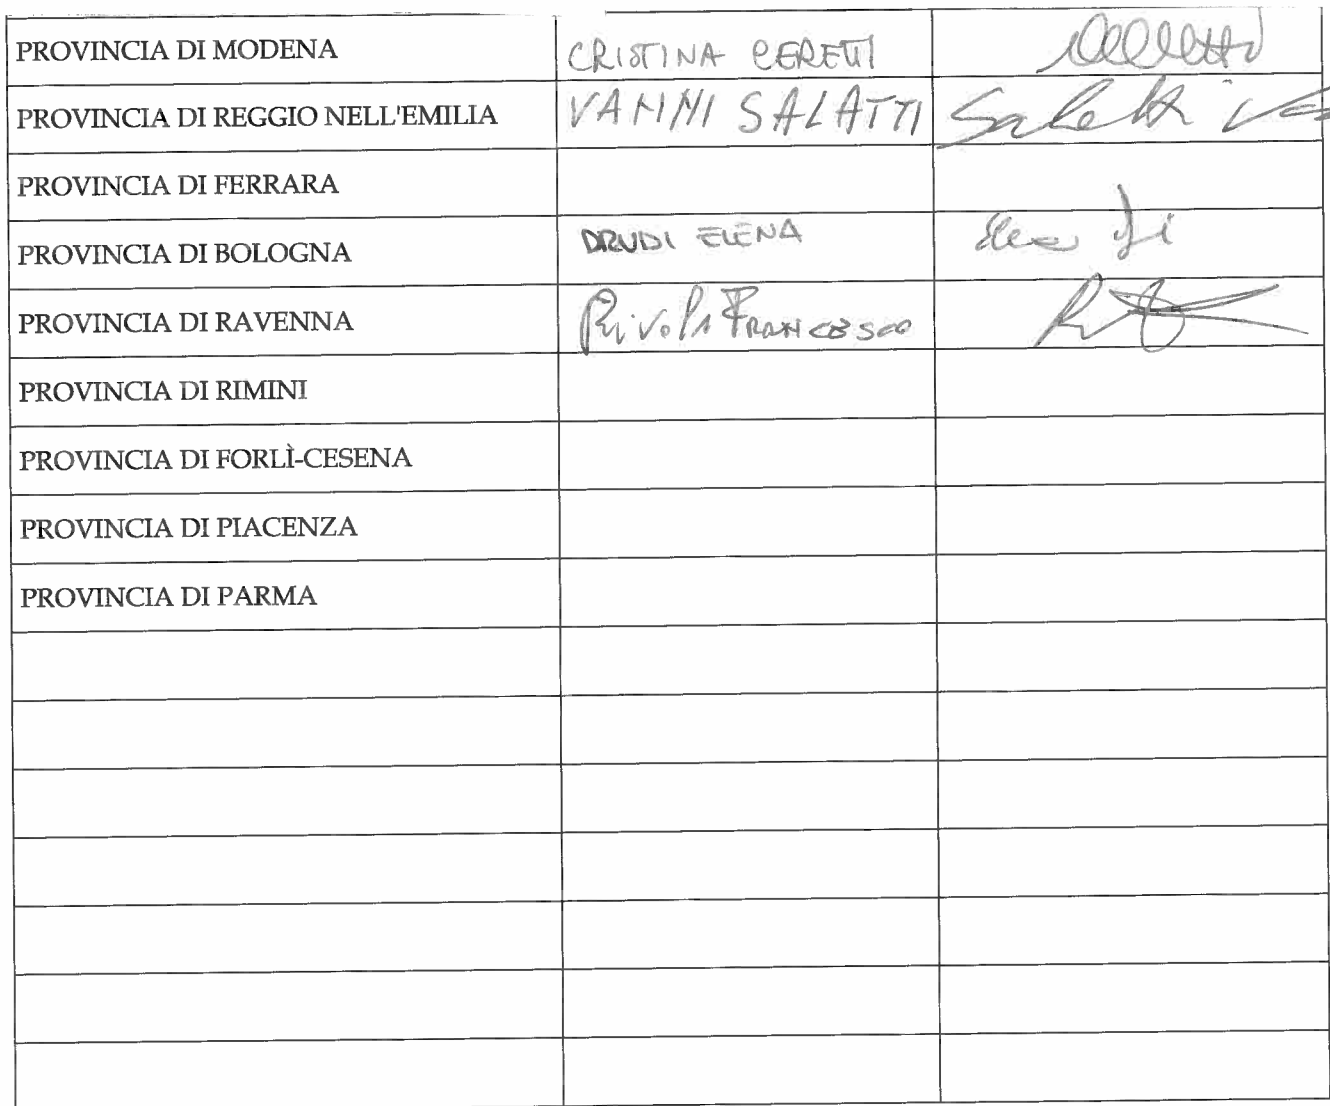 PROVINCIA DI MODENA CRISTINA CERETTI
PROVINCIA DI REGGIO NELL'EMILIA VANNI SALATTI
PROVINCIA DI FERRARA
PROVINCIA DI BOLOGNA DRUDI ELENA
PROVINCIA DI RAVENNA Rivola Francesco
PROVINCIA DI RIMINI
PROVINCIA DI FORLÌ-CESENA
PROVINCIA DI PIACENZA
PROVINCIA DI PARMA